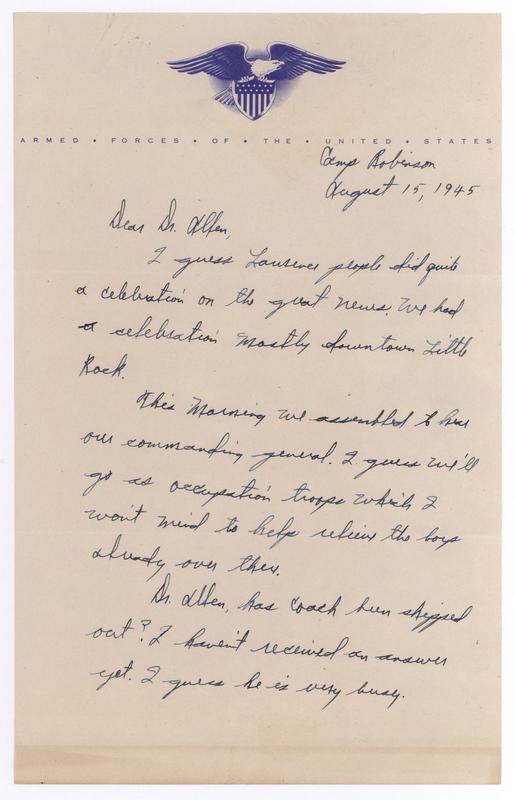 ARMED • FORCES • OF • THE • UNITED • STATES
Camp Robinson
August 15, 1945
Dear Dr. Allen,
I guess Lawrence people did quite
a celebration on the great news. We had
a celebration mostly downtown Little
Rock.
This morning we assembled to hear
our commanding general. I guess we'll
go as occupation troops which I
won't mind to help relieve the boys
already over there.
Dr. Allen, has Coach been shipped
out? I haven't received an answer
yet. I guess he is very busy.